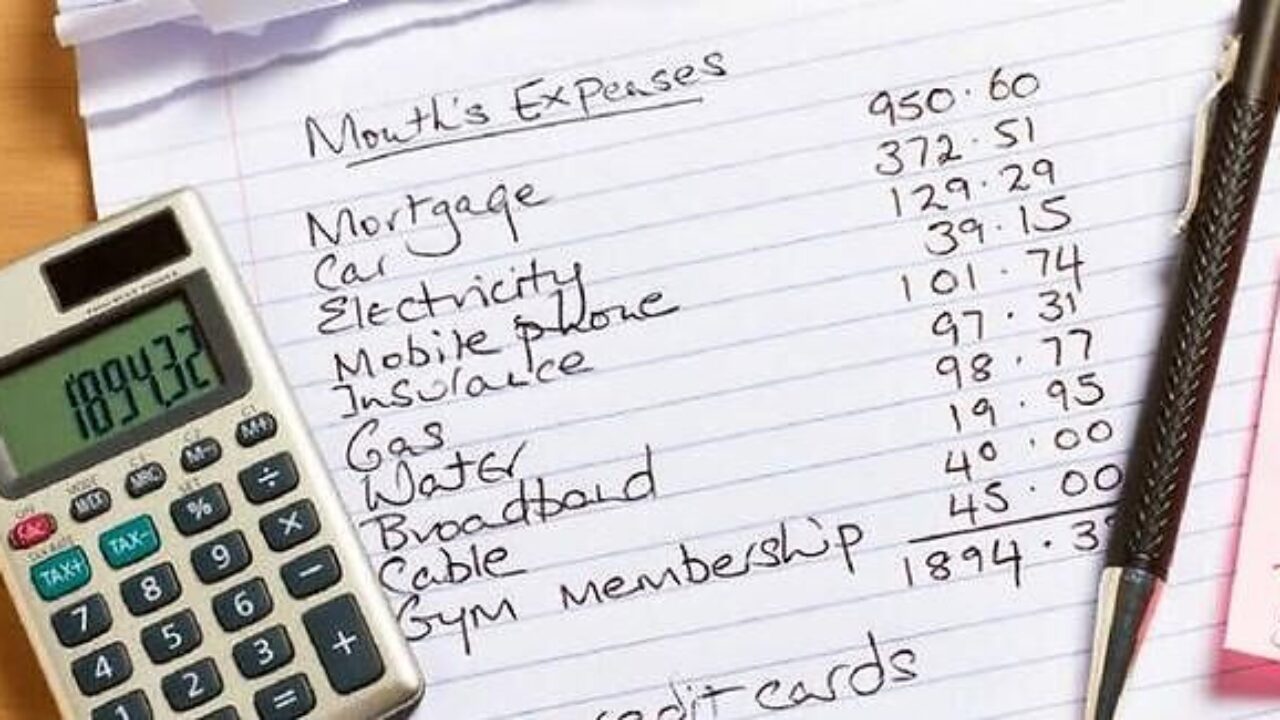 Month's Expenses
Mortgage 950.60
Car 372.51
Electricity 129.29
Mobile phone 39.15
Insurance 101.74
Gas 97.31
Water 98.77
Broadband 19.95
Cable 40.00
Gym membership 45.00
1894.3
cards
189432
MRC M- M+
% ÷
TAX+ TAX- ×
7 8 9 −
4 5 6 +
1 2 3 =